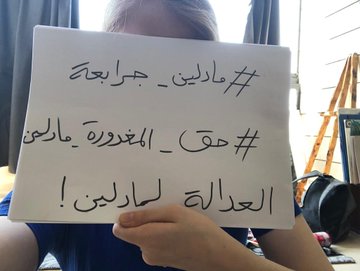 #مادلين_جرابعة
#حق_المغدورة_مادلين
العدالة لمادلين!